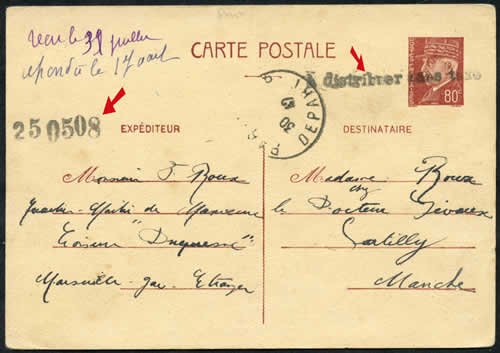 reçu le 31 juillet
répondu le 17 août
CARTE POSTALE
A distribuer sans taxe
80c
DEPART
30
250508
EXPÉDITEUR
DESTINATAIRE
Monsieur F. Roux
Quartier-Maître de Manœuvre
Croiseur "Duquesne"
Marseille-Gare Etranger
Madame Roux
chez
le Docteur
Sartilly
Manche